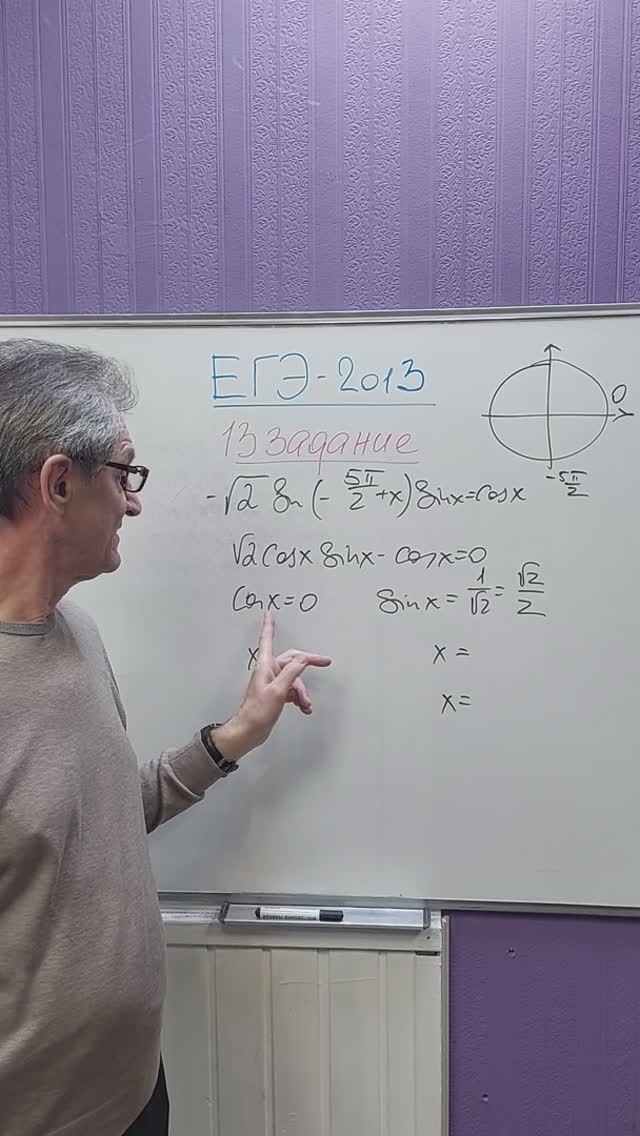 ЕГЭ-2013
13 задание
-√2 sin(-5π/2+x)sinx=cosx
√2cosx sinx-cosx=0
cosx=0 sinx=1/√2=√2/2
x x=
x=
0
-5π/2